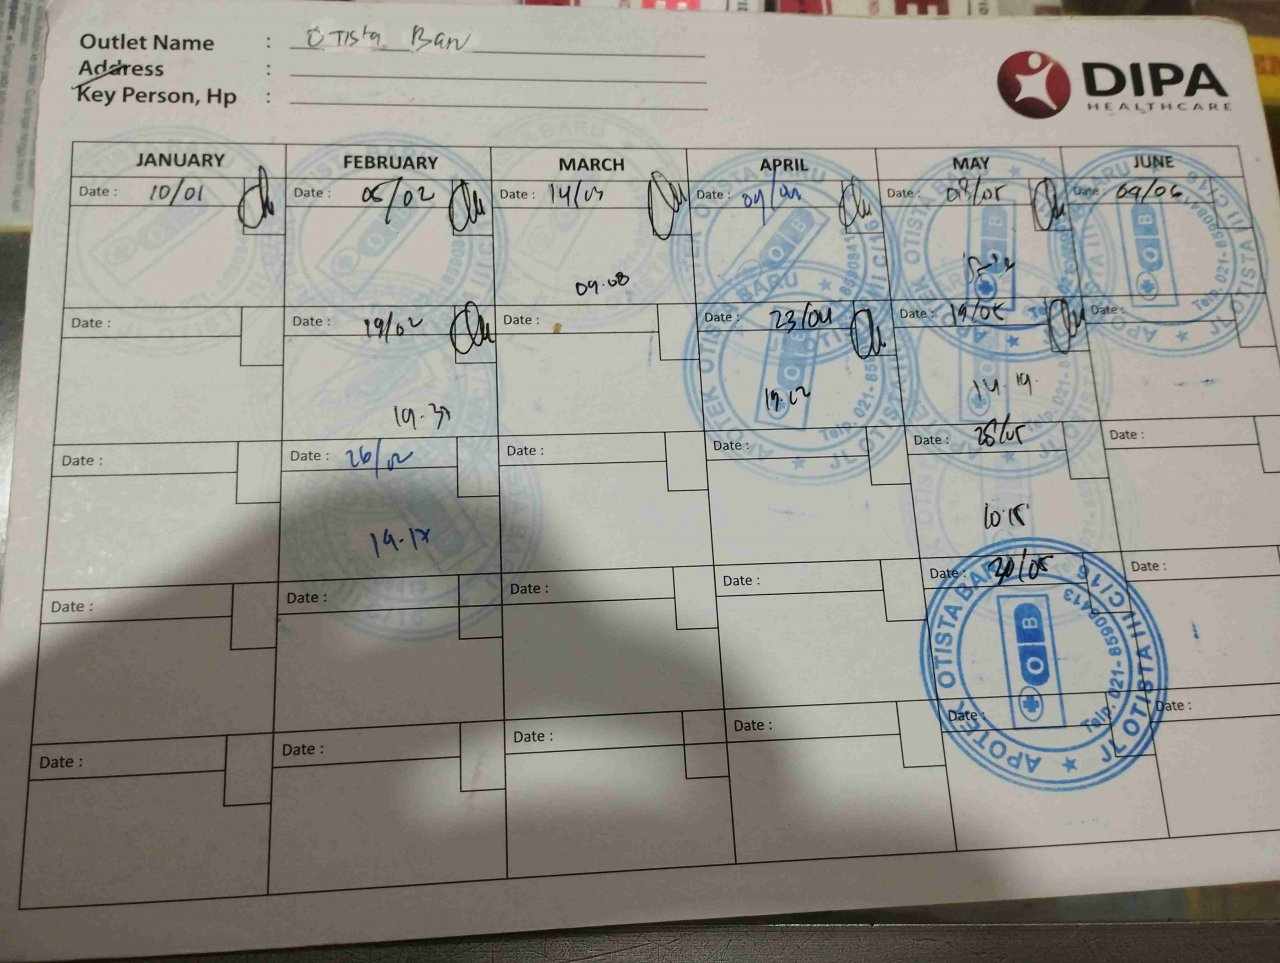 Outlet Name : Otista Baru
Address :
Key Person, Hp :
DIPA
HEALTHCARE
JANUARY FEBRUARY MARCH APRIL MAY JUNE
Date : 10/01 Date : 05/02 Date : 14/03 Date : Date : 08/05 Date : 09/06
09.08
Date : Date : 19/02 Date : Date : 23/04 Date : 19/05 Date :
14.19
Date : Date : 26/02 Date : Date : Date : 28/05 Date :
10.15
Date : Date : Date : Date : Date : 30/05 Date :
Date : Date : Date : Date : Date : Date :
APOTEK OTISTA BARU
JL OTISTA III C/16
Telp. 021-85908413
O B